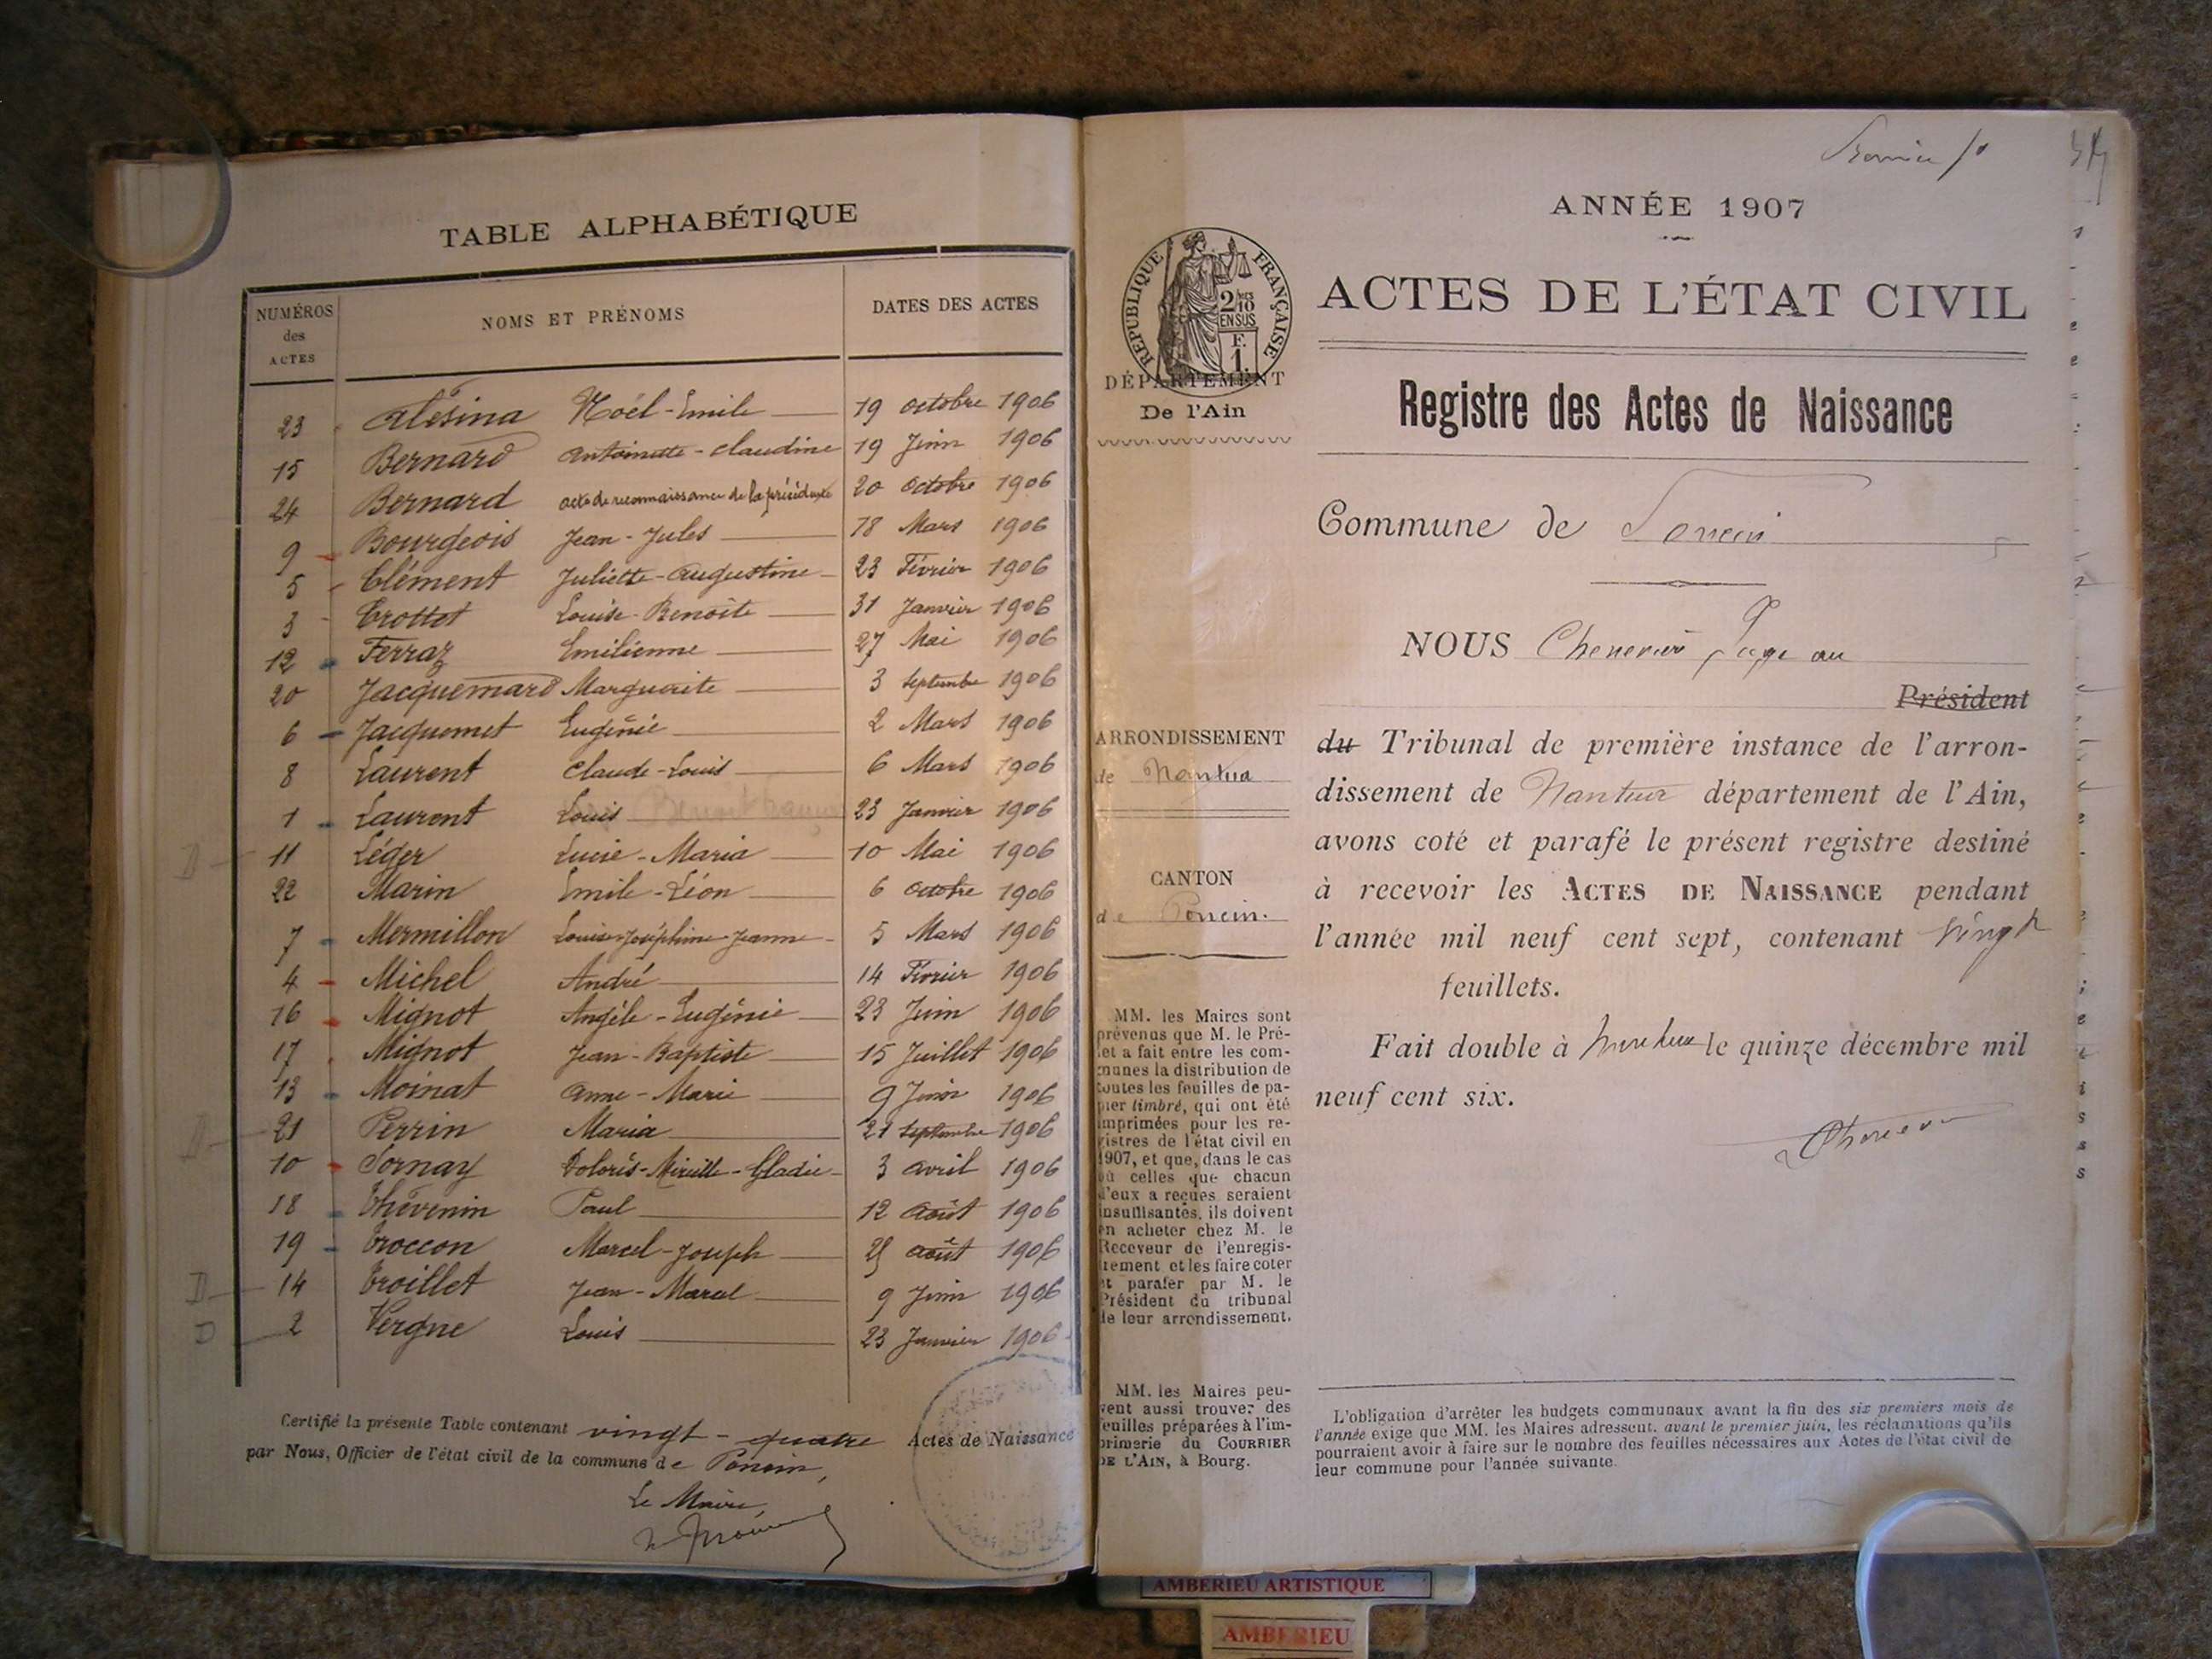 TABLE ALPHABÉTIQUE
NUMÉROS des ACTES
NOMS ET PRÉNOMS
DATES DES ACTES
23 Alésina Noël-Emile 19 octobre 1906
15 Bernard Antoinette-Claudine 19 Juin 1906
24 Bernard acte de reconnaissance de la précédente 20 Octobre 1906
9 Bourgeois Jean-Jules 18 Mars 1906
5 Clément Juliette-Augustine 23 Février 1906
3 Crottet Louise-Benoîte 31 Janvier 1906
12 Ferraz Emilienne 27 Mai 1906
20 Jacquemard Marguerite 3 Septembre 1906
6 Jacquemet Eugénie 2 Mars 1906
8 Laurent Claude-Louis 6 Mars 1906
1 Laurent Louis 23 Janvier 1906
D 11 Léger Lucie-Maria 10 Mai 1906
22 Marin Emile-Léon 6 Octobre 1906
7 Mermillon Louise-Joséphine-Jeanne 5 Mars 1906
4 Michel André 14 Février 1906
16 Mignot Angèle-Eugénie 23 Juin 1906
17 Mignot Jean-Baptiste 15 Juillet 1906
13 Moinat Anne-Marie 9 Juin 1906
D 21 Perrin Maria 21 Septembre 1906
10 Sornay Dolorès-Mireille-Gladie 3 Avril 1906
18 Thévenin Paul 12 Août 1906
19 Troccon Marcel-Joseph 25 Août 1906
D 14 Troillet Jean-Marcel 9 Juin 1906
D 2 Vergne Louis 23 Janvier 1906
Certifié la présente Table contenant vingt-quatre Actes de Naissance
par Nous, Officier de l'état civil de la commune de Poncin,
Le Maire,
RÉPUBLIQUE FRANÇAISE
2/10
EN SUS
F.
1.
DÉPARTEMENT
De l'Ain
ARRONDISSEMENT
de Nantua
CANTON
de Poncin.
MM. les Maires sont
prévenus que M. le Pré-
fet a fait entre les com-
munes la distribution de
toutes les feuilles de pa-
pier timbré, qui ont été
imprimées pour les re-
gistres de l'état civil en
1907, et que, dans le cas
où celles que chacun
d'eux a reçues seraient
insuffisantes, ils doivent
en acheter chez M. le
Receveur de l'enregis-
trement et les faire coter
et parafer par M. le
Président du tribunal
de leur arrondissement.
MM. les Maires peu-
vent aussi trouver des
feuilles préparées à l'im-
primerie du COURRIER
DE L'AIN, à Bourg.
ANNÉE 1907
ACTES DE L'ÉTAT CIVIL
Registre des Actes de Naissance
Commune de Poncin
NOUS Chenevier Juge au
Président
du Tribunal de première instance de l'arron-
dissement de Nantua département de l'Ain,
avons coté et parafé le présent registre destiné
à recevoir les ACTES DE NAISSANCE pendant
l'année mil neuf cent sept, contenant vingt
feuillets.
Fait double à Nantua le quinze décembre mil
neuf cent six.
L'obligation d'arrêter les budgets communaux avant la fin des six premiers mois de
l'année exige que MM. les Maires adressent, avant le premier juin, les réclamations qu'ils
pourraient avoir à faire sur le nombre des feuilles nécessaires aux Actes de l'état civil de
leur commune pour l'année suivante.
AMBERIEU ARTISTIQUE
AMBERIEU